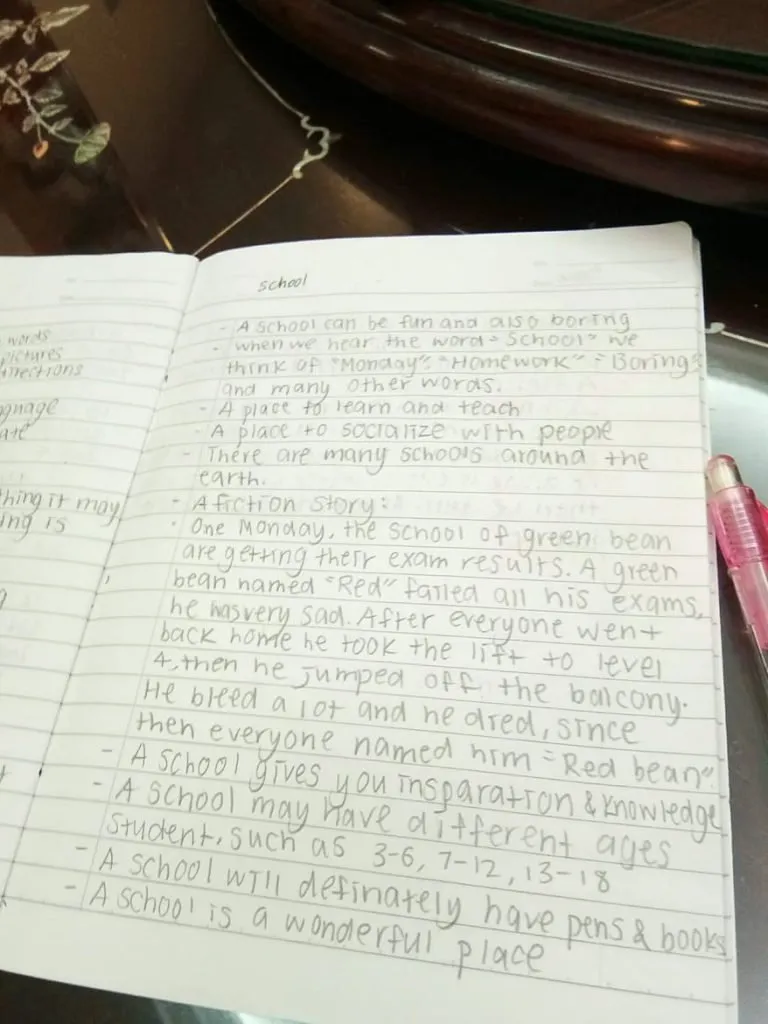 school
words
pictures
- A school can be fun and also boring
- when we hear the word "School" we
think of "Monday", "Homework" "Boring"
and many other words.
- A place to learn and teach
- A place to socialize with people
- There are many schools around the
earth.
- A fiction story:
One Monday, the school of green bean
are getting their exam results. A green
bean named "Red" failed all his exams,
he was very sad. After everyone went
back home he took the lift to level
4, then he jumped off the balcony.
He bleed a lot and he died, since
then everyone named him "Red bean".
- A school gives you insparation & knowledge
- A school may have different ages
student, such as 3-6, 7-12, 13-18
- A school will definately have pens & books
- A school is a wonderful place
thing it may
ing is